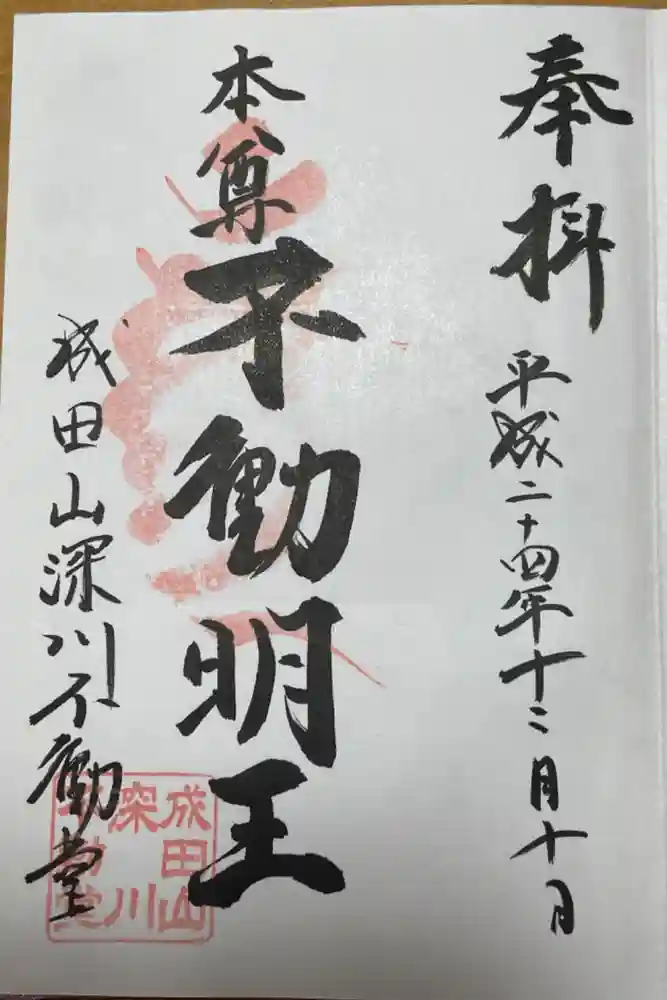 奉拝
平成二十四年十二月十日
本尊不動明王
成田山深川不動堂
成田山
深川
不動堂